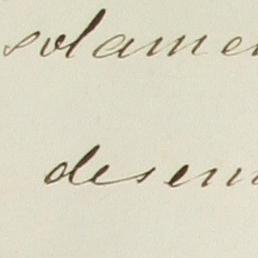 solame
desem